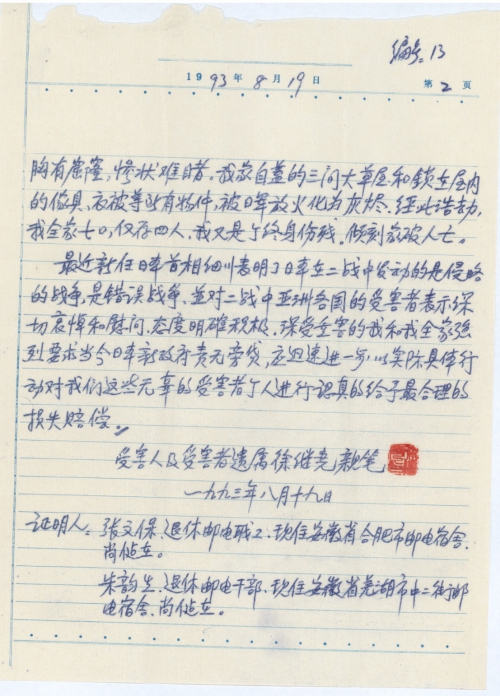 编号:13
1993年8月19日
第2页
胸有窟窿,惨状难睹。我家自盖的三间大草屋和锁在屋内
的傢具、衣被等所有物件,被日军放火化为灰烬。经此浩劫,
我全家七口,仅存四人,我又是个终身伤残,倾刻家被人亡。
最近新任日本首相细川表明了日本在二战中发动的是侵略
的战争,是错误战争,並对二战中亚洲各国的受害者表示深
切哀悼和慰问,态度明确积极,深受其害的我和我全家强
烈要求当今日本新政府责无旁贷,应迅速进一步,以实际具体行
动对我们这些无辜的受害者个人进行認真的给予最合理的
损失赔偿。
受害人及受害者遗属徐继尧親笔
一九九三年八月十九日
证明人:张文保、退休邮电职工、现住安徽省合肥市邮电宿舍、
尚健在。
朱韵生、退休邮电干部、现住安徽省芜湖市中二街邮
电宿舍、尚健在。